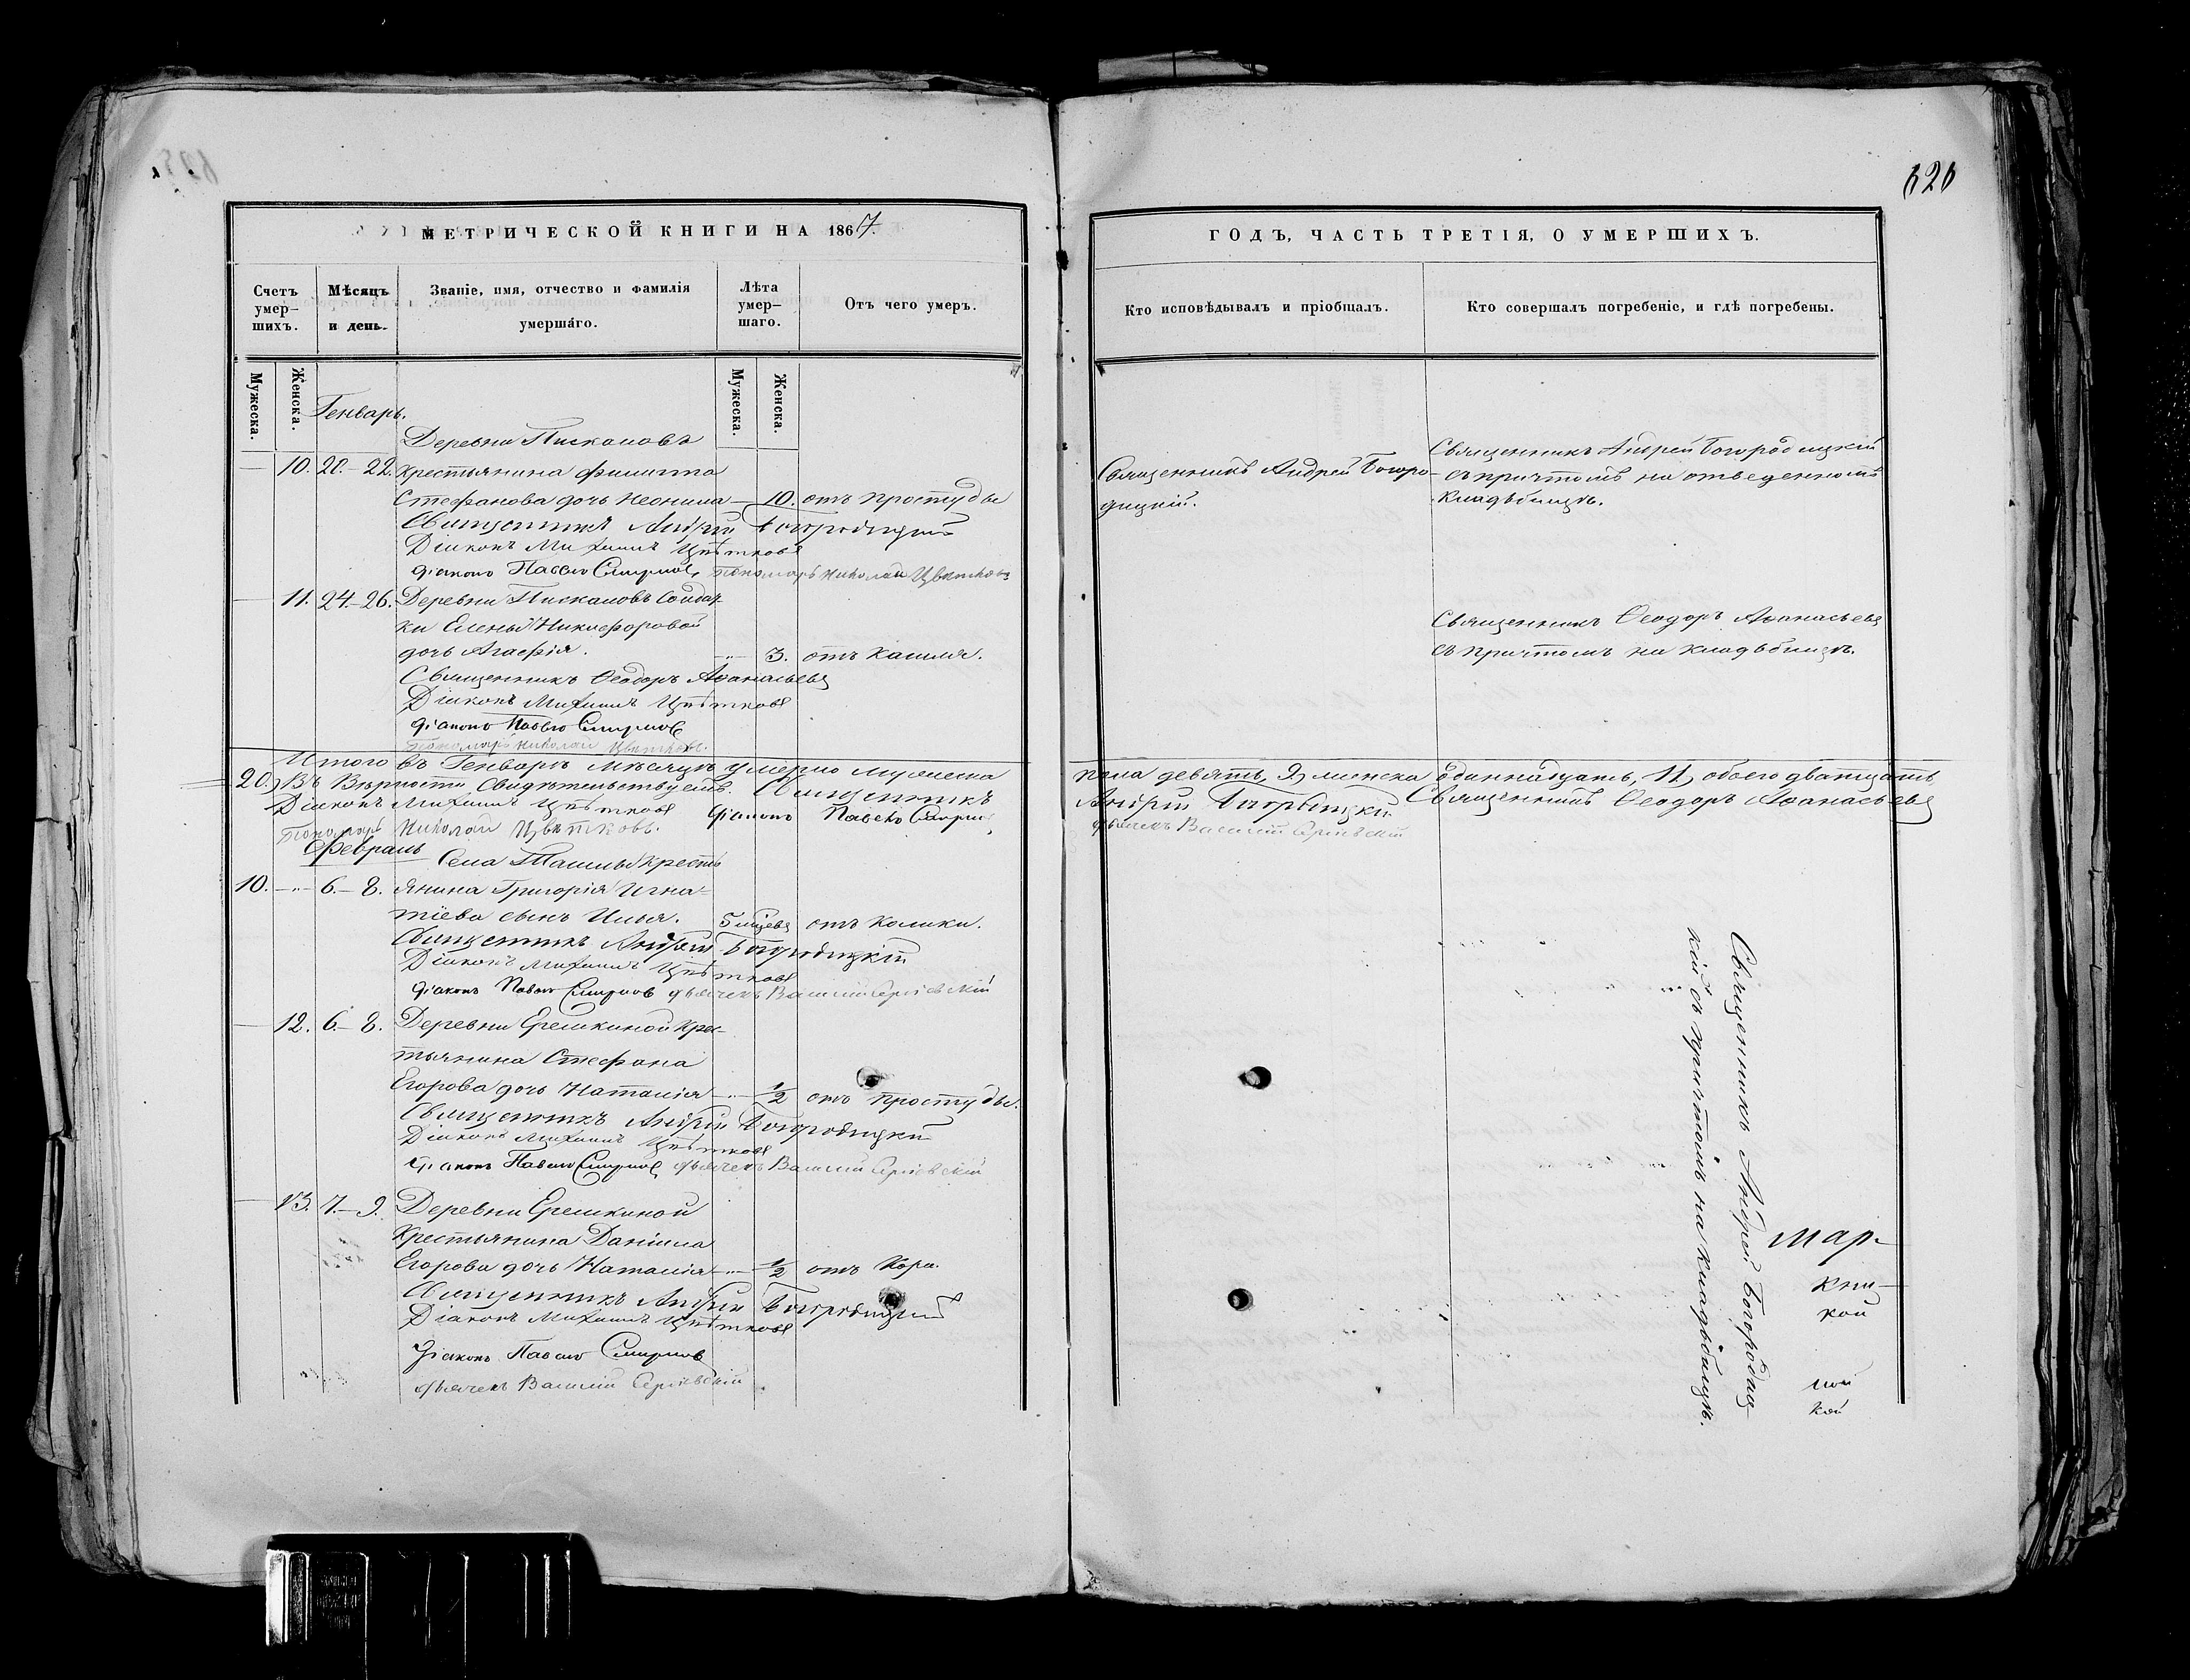 МЕТРИЧЕСКОЙ КНИГИ НА 1867.
Счетъ умер-
шихъ.
Мѣсяцъ
и день.
Званіе, имя, отчество и фамилія
умершаго.
Лѣта
умер-
шаго.
Отъ чего умеръ.
Мужеска.
Женска.
Мужеска.
Женска.
Генварь.
Деревни Пискаловъ
— 10. 20.-22. крестьянина Филиппа
Стефанова дочь Неонила — 10. отъ простуды
Священникъ Андрей Богородицкій
Діаконъ Михаилъ Цвѣтковъ
Діаконъ Павелъ Смирновъ, Пономарь Николай Цвѣтковъ
— 11. 24.-26. Деревни Пискаловъ Солдат-
ки Елены Никифоровой
дочь Агафія. -"- 3. отъ Кашля.
Священникъ Ѳеодоръ Аѳанасьевъ
Діаконъ Михаилъ Цвѣтковъ
Діаконъ Павелъ Смирновъ
Пономарь Николай Цвѣтковъ.
Итого въ Генварѣ мѣсяцѣ умерло мужеска
20.) Въ Вѣрности Свидѣтельствуемъ. Священникъ
Діаконъ Михаилъ Цвѣтковъ Діаконъ Павелъ Смирнов
Пономарь Николай Цвѣтковъ.
Февраль
Села Ташлы крестъ
10. -"- 6.-8. янина Григорія Игна-
тіева сынъ Илья. 5 мцевъ отъ Колики.
Священникъ Андрей Богородицкій
Діаконъ Михаилъ Цвѣтковъ
Діаконъ Павелъ Смирновъ дьячекъ Василій Сергіевскій
— 12. 6.-8. Деревни Еремкиной крес-
тьянина Стефана
Егорова дочь Наталія -"- 1/2 отъ простуды.
Священникъ Андрей Богородицкій
Діаконъ Михаилъ Цвѣтковъ
Діаконъ Павелъ Смирновъ дьячекъ Василій Сергіевскій
— 13. 7.-9. Деревни Еремкиной
Крестьянина Даніила
Егорова дочь Наталія -"- 1/2 отъ Кори.
Священникъ Андрей Богородицкій
Діаконъ Михаилъ Цвѣтковъ
Діаконъ Павелъ Смирновъ
дьячекъ Василій Сергіевскій
ГОДЪ, ЧАСТЬ ТРЕТІЯ, О УМЕРШИХЪ.
Кто исповѣдывалъ и пріобщалъ.
Кто совершалъ погребеніе, и гдѣ погребены.
Священникъ Андрей Богоро-
дицкій.
Священникъ Андрей Богородицкій
съ причтомъ на отведенномъ
кладьбищѣ.
Священникъ Ѳеодоръ Аѳанасьевъ
съ причтомъ на кладьбищѣ.
пола девять, 9, женска одиннадцать, 11, обоего двадцать
Андрей Богородицкій Священникъ Ѳеодоръ Аѳанасьевъ
дьячекъ Василій Сергіевскій
Священникъ Андрей Богородиц-
кій съ причтомъ на кладьбищѣ.
мар-
кой
кой